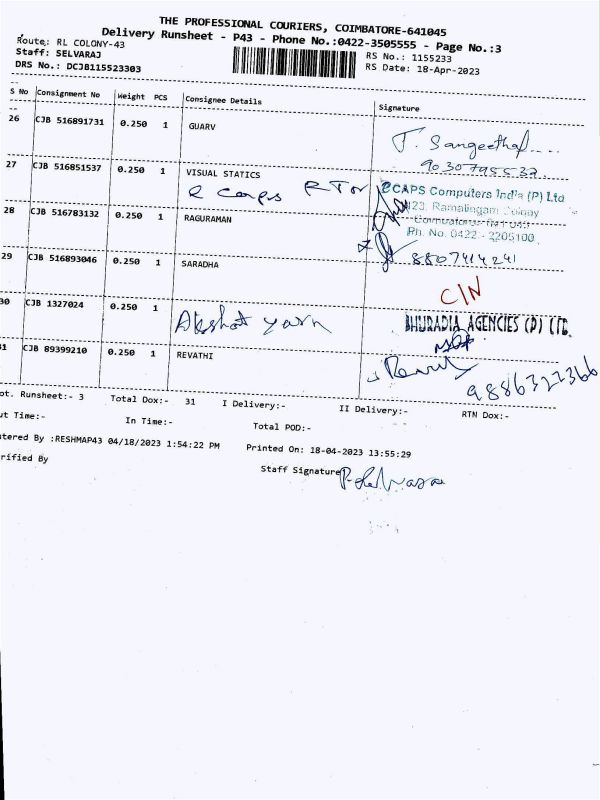 THE PROFESSIONAL COURIERS, COIMBATORE-641045
Delivery Runsheet - P43 - Phone No.:0422-3505555 - Page No.:3
Route: RL COLONY-43
RS No.: 1155233
Staff: SELVARAJ
RS Date: 18-Apr-2023
DRS No.: DCJB115523303
S No Consignment No Weight PCS Consignee Details Signature
26 CJB 516891731 0.250 1 GUARV
T. Sangeetha
9030795532
27 CJB 516851537 0.250 1 VISUAL STATICS
CAPS Computers India (P) Ltd
123, Ramalingam Colony
28 CJB 516783132 0.250 1 RAGURAMAN
Ph. No. 0422 - 2205100
8807414241
29 CJB 516893046 0.250 1 SARADHA
C/N
30 CJB 1327024 0.250 1 Akshat yarn
BHURADIA AGENCIES (P) LTD.
31 CJB 89399210 0.250 1 REVATHI
9886322366
ot. Runsheet:- 3 Total Dox:- 31 I Delivery:- II Delivery:- RTN Dox:-
ut Time:- In Time:- Total POD:-
tered By :RESHMAP43 04/18/2023 1:54:22 PM Printed On: 18-04-2023 13:55:29
rified By
Staff Signature